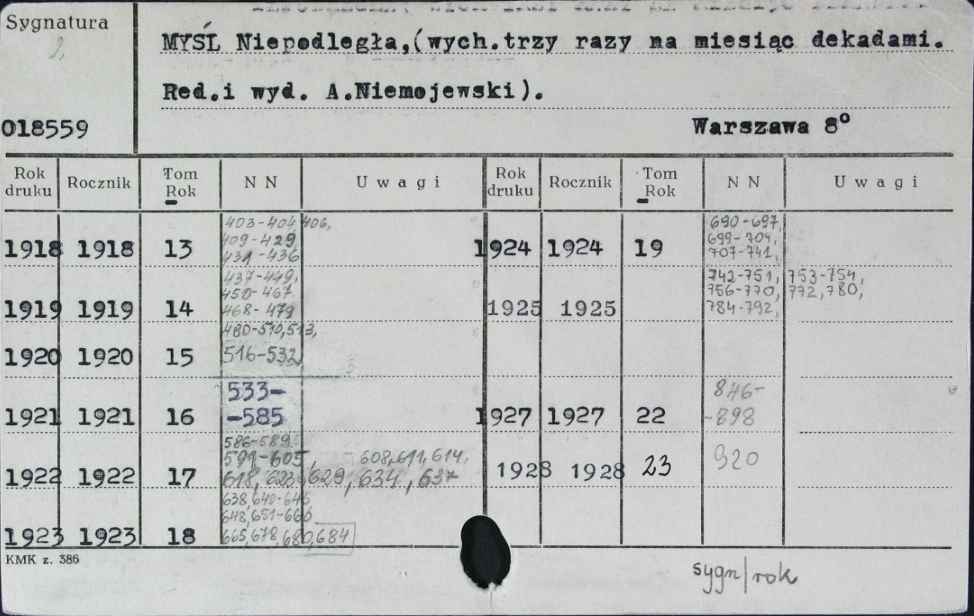 Sygnatura
MYŚL Niepodległa,(wych.trzy razy na miesiąc dekadami.
Red.i wyd. A.Niemojewski).
018559
Warszawa 8°
Rok druku Rocznik Tom Rok NN Uwagi Rok druku Rocznik Tom Rok NN Uwagi
1918 1918 13 403-404, 406,
409-429
431-436
1924 1924 19 690-697,
699-704,
707-741,
1919 1919 14 437-449,
450-467
468-479
1925 1925 742-751, 753-754,
756-770, 772, 780,
784-792,
1920 1920 15 480-510, 513,
516-532
1921 1921 16 533-
-585
1927 1927 22 846-
-898
1922 1922 17 586-589
591-605, 608, 611, 614,
618, 629, 634, 637
1928 1928 23 920
1923 1923 18 638, 640-645
648, 651-660
665, 678, 680, 684
KMK z. 386
sygn/rok